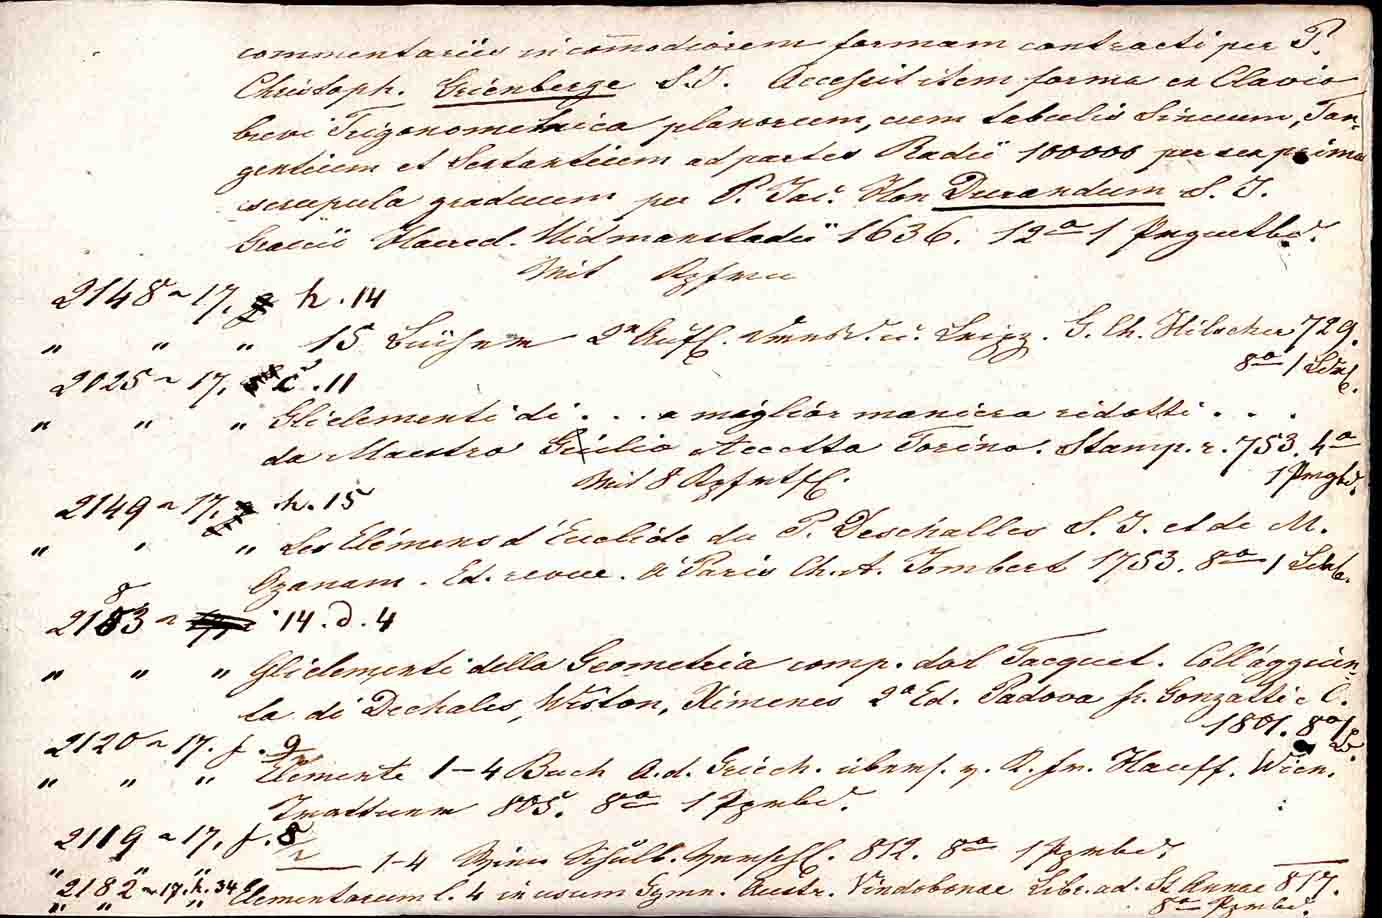 commentariis in com̄odiorem formam contracti per P.
Christoph. Grienberge S.J. Accessit item forma ex Clavio
brevi Trigonometrica planorum, cum tabulis Sinuum, Tan-
gentium et Secantium ad partes Radii 100000 per sex prima
scrupula graduum per P. Jac. Hon Durandum S.J.
Graecii Haered. Widmanstadii 1636. 12º 1 Prgmtbd.
Mit Kpfrn
2148 ~ 17. h. 14
" " " 15 Büchern 2e Aufl. u. Leipz. G. Ch. Hilscher 729.
8º 1
2025 ~ 17. c. 11
" " " Gli elementi di . . . a miglior maniera ridotti . . .
da Maestro Giulio Accetta Torino. Stamp. r. 753. 4º
Mit 8 Kpfrtfl. 1 Prgtbd.
2149 ~ 17. h. 15
" " " Les Elémens d'Euclide du P. Deschalles S.J. et de M.
Ozanam. Ed. revue. à Paris Ch. A. Jombert 1753. 8º 1
8
2153 ~ 14. d. 4
" " " Gli elementi della Geometria comp. dal Tacquet. Coll'aggiun-
ta di Dechales, Wiston, Ximenes 2ª Ed. Padova fr. Gonzatti C.
1801. 8º
2120 ~ 17. f. 9
" " " Elemente 1–4 Buch A. d. Griech. übers. v. Hauff. Wien.
Trattnern 805. 8º 1 Ppmbd.
2119 ~ 17. f. 8
" " " — 1–4 Wien Schulb. Verschl. 812. 8º 1 Ppmbd.
2182 ~ 17. h. 34
" " " Elementarum l. 4 in usum Gymn. Austr. Vindobonae Libr. ad. St Annae 817.
8º Ppmbd.